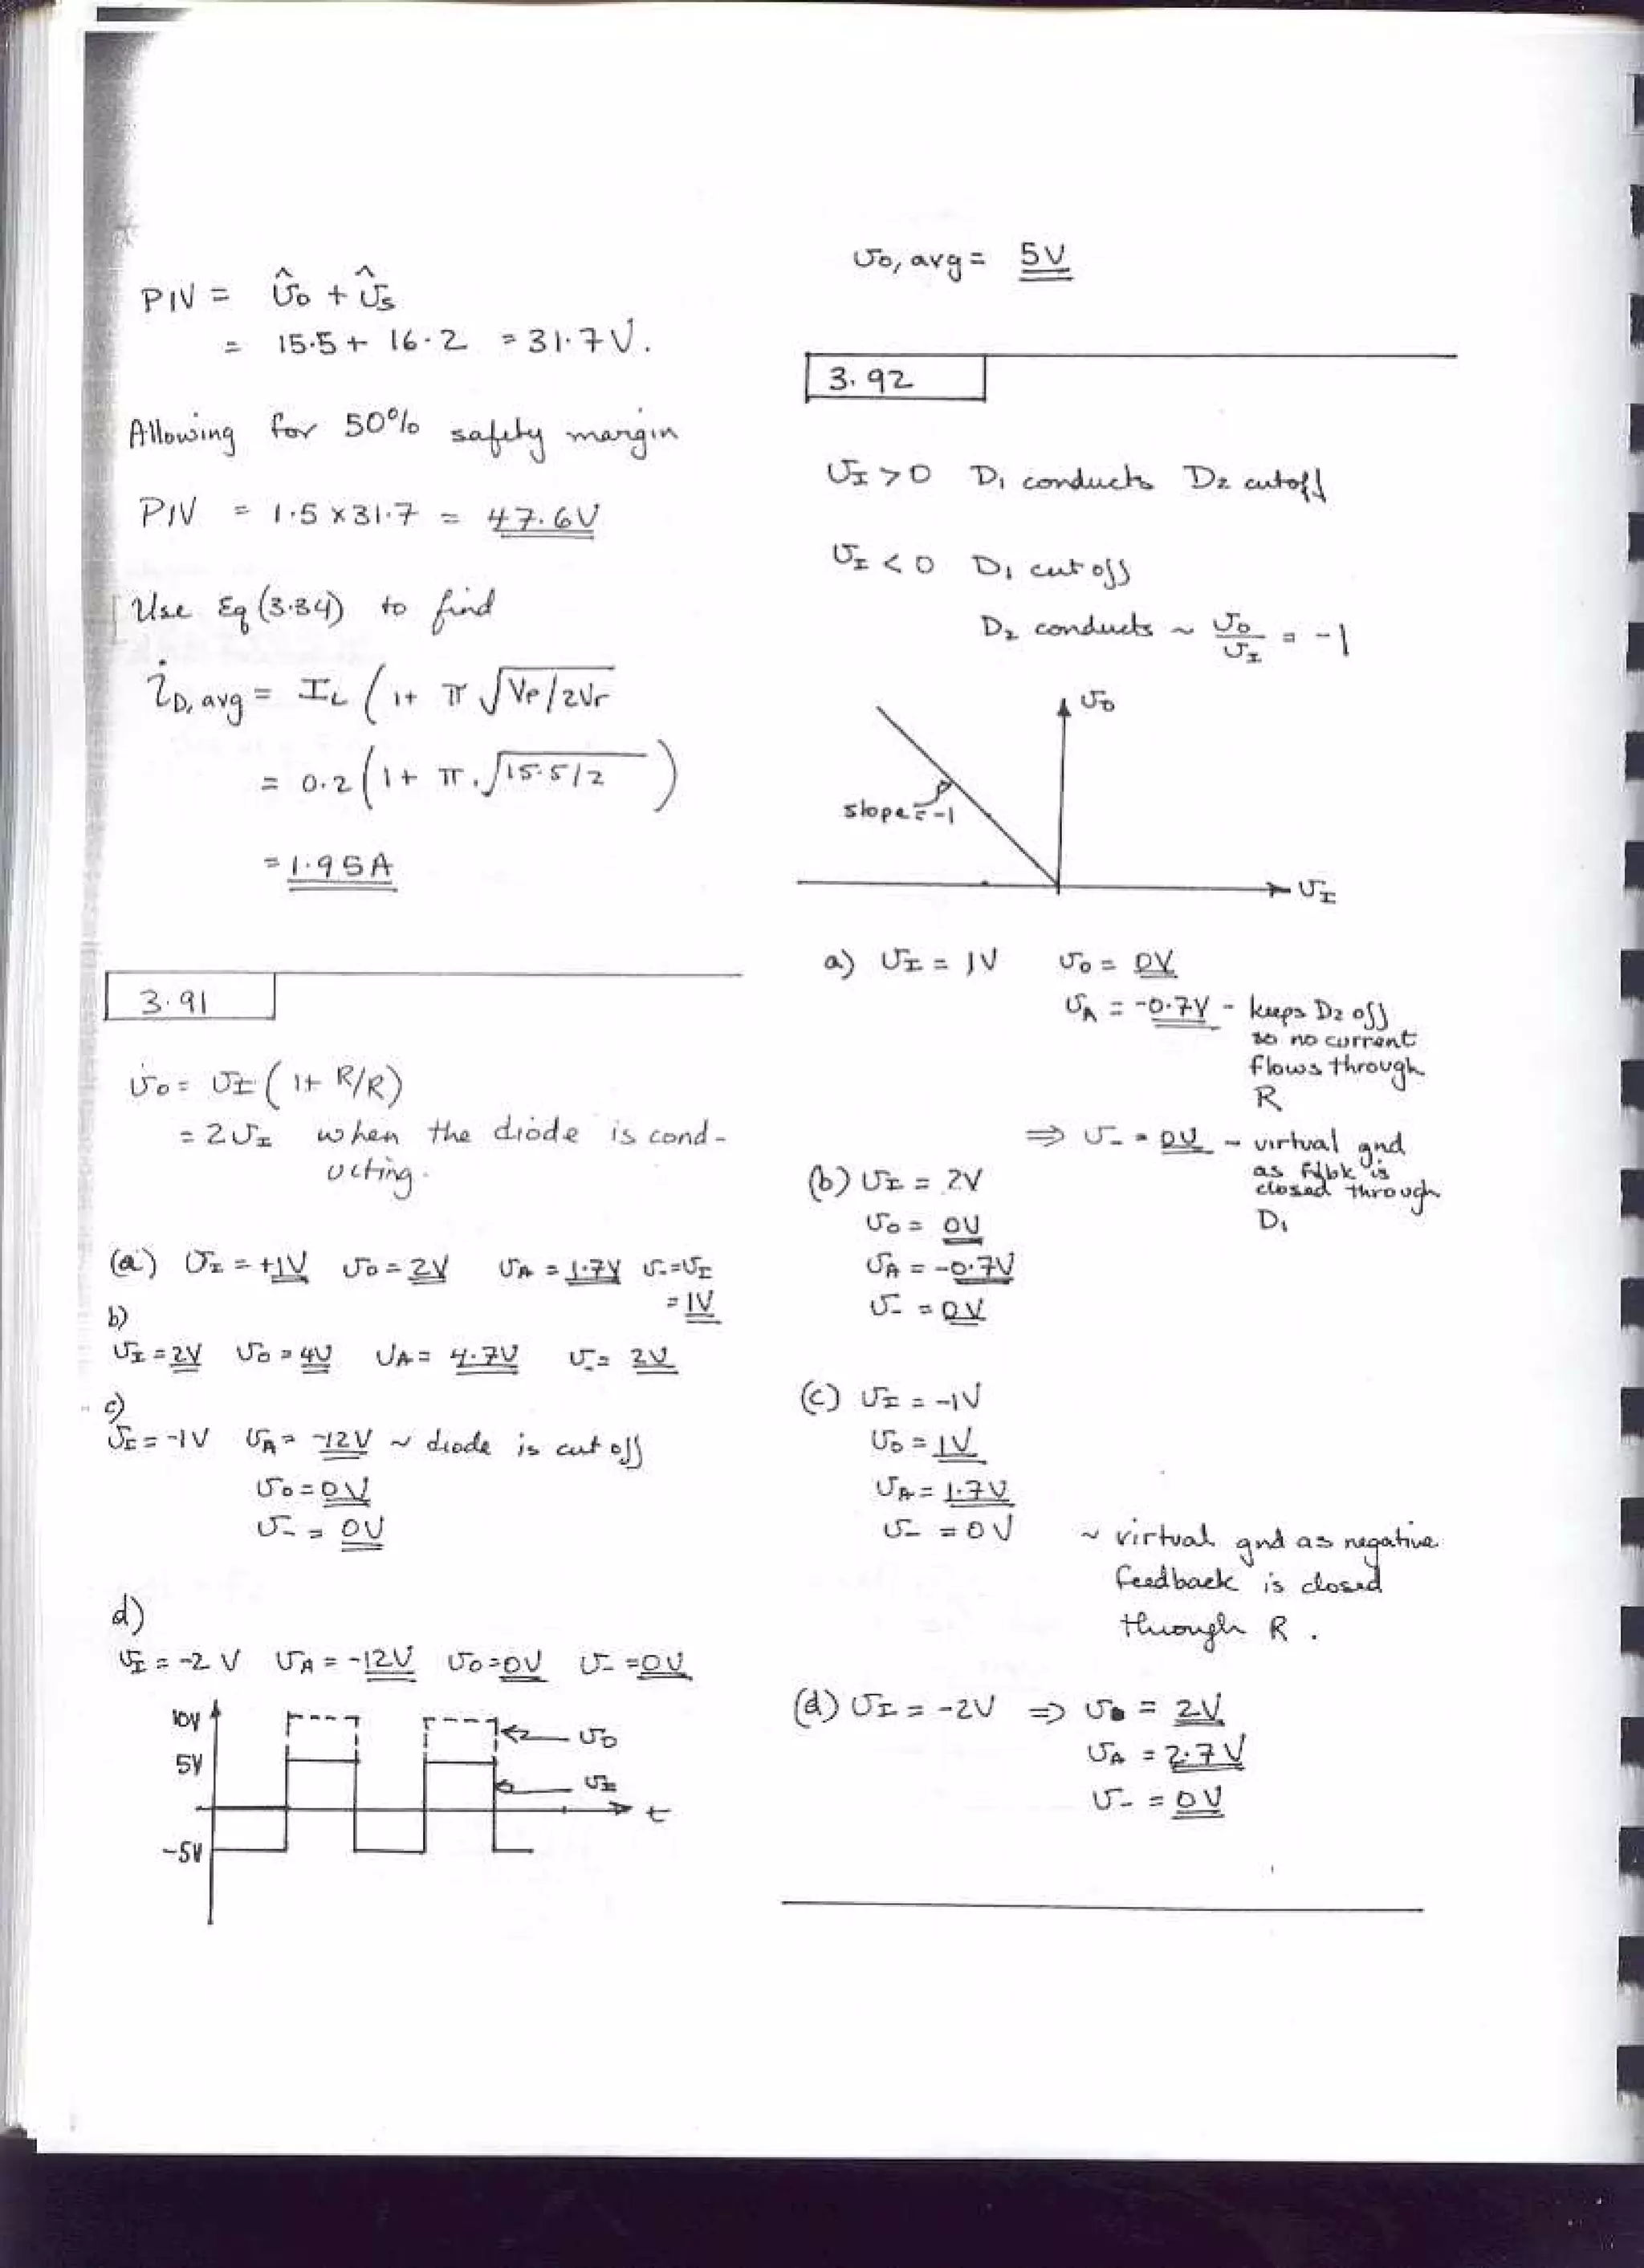 PIV = v̂o + v̂s
= 15.5 + 16.2 = 31.7V.
Allowing for 50% safety margin
PIV = 1.5 x 31.7 = 47.6V
Use Eq (3.34) to find
iD,avg = IL (1+ π √Vp/2Vr
= 0.2 (1+ π.√15.5/2 )
= 1.95A
3.91
vo = vI (1+ R/R)
= 2vI when the diode is cond-
ucting.
(a) vI = +1V vo = 2V vA = 1.7V v- = vI
= 1V
b)
vI = 2V vo = 4V vA = 4.7V v- = 2V
c)
vI = -1V vA = -12V ~ diode is cut off
vo = 0V
v- = 0V
d)
vI = -2V vA = -12V vo = 0V v- = 0V
10V
vo
5V
vI
t
-5V
vo,avg = 5V
3.92
vI > 0 D1 conducts D2 cutoff
vI < 0 D1 cut off
D2 conducts ~ vo/vI = -1
vo
slope = -1
vI
a) vI = 1V vo = 0V
vA = -0.7V - keeps D2 off
so no current
flows through
R
⇒ v- = 0V - virtual gnd
as fdbk is
closed through
D1
(b) vI = 2V
vo = 0V
vA = -0.7V
v- = 0V
(c) vI = -1V
vo = 1V
vA = 1.7V
v- = 0V ~ virtual gnd as negative
feedback is closed
through R.
(d) vI = -2V ⇒ vo = 2V
vA = 2.7V
v- = 0V